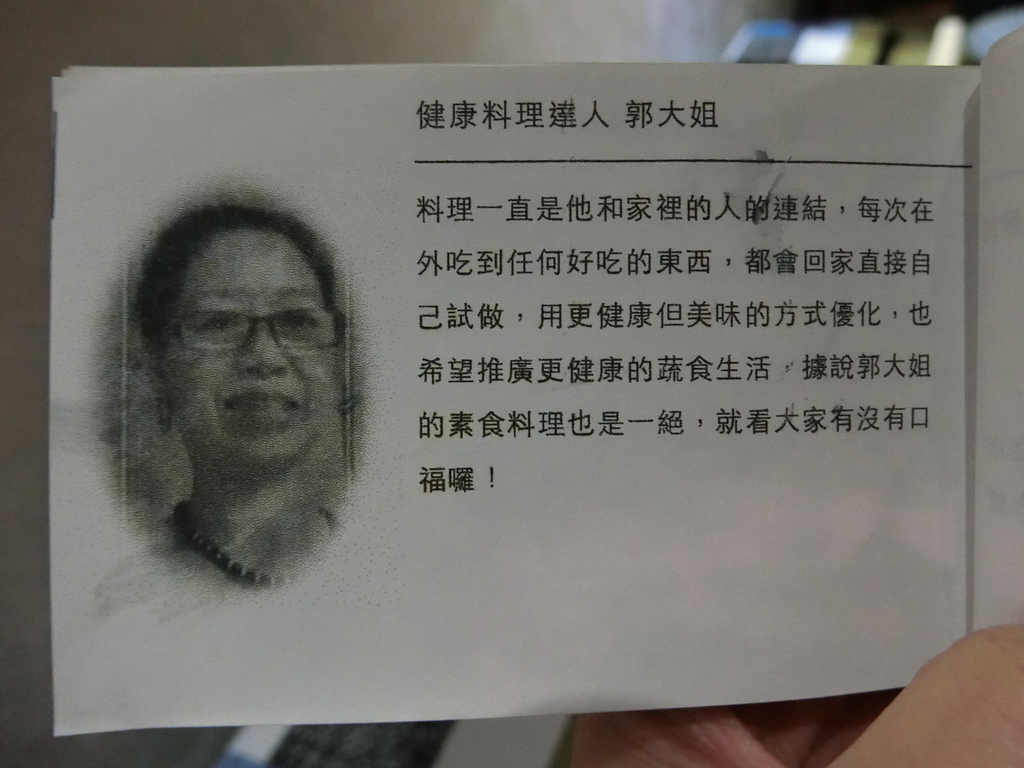 健康料理達人 郭大姐
料理一直是他和家裡的人的連結，每次在
外吃到任何好吃的東西，都會回家直接自
己試做，用更健康但美味的方式優化，也
希望推廣更健康的蔬食生活，據說郭大姐
的素食料理也是一絕，就看大家有沒有口
福囉！